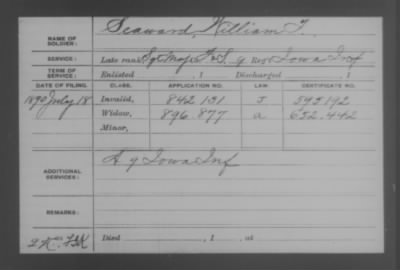 Seaward, William T.
NAME OF SOLDIER:
SERVICE: Late rank Sgt Maj F&S, 9 Iowa Inf
TERM OF SERVICE: Enlisted , 1 Discharged , 1
DATE OF FILING. CLASS. APPLICATION NO. LAW. CERTIFICATE NO.
1890 July 18 Invalid, 842.131 J 595192
Widow, 896.877 a 652.442
Minor,
A 9 Iowa Inf
ADDITIONAL SERVICES:
REMARKS:
Died , 1 , at